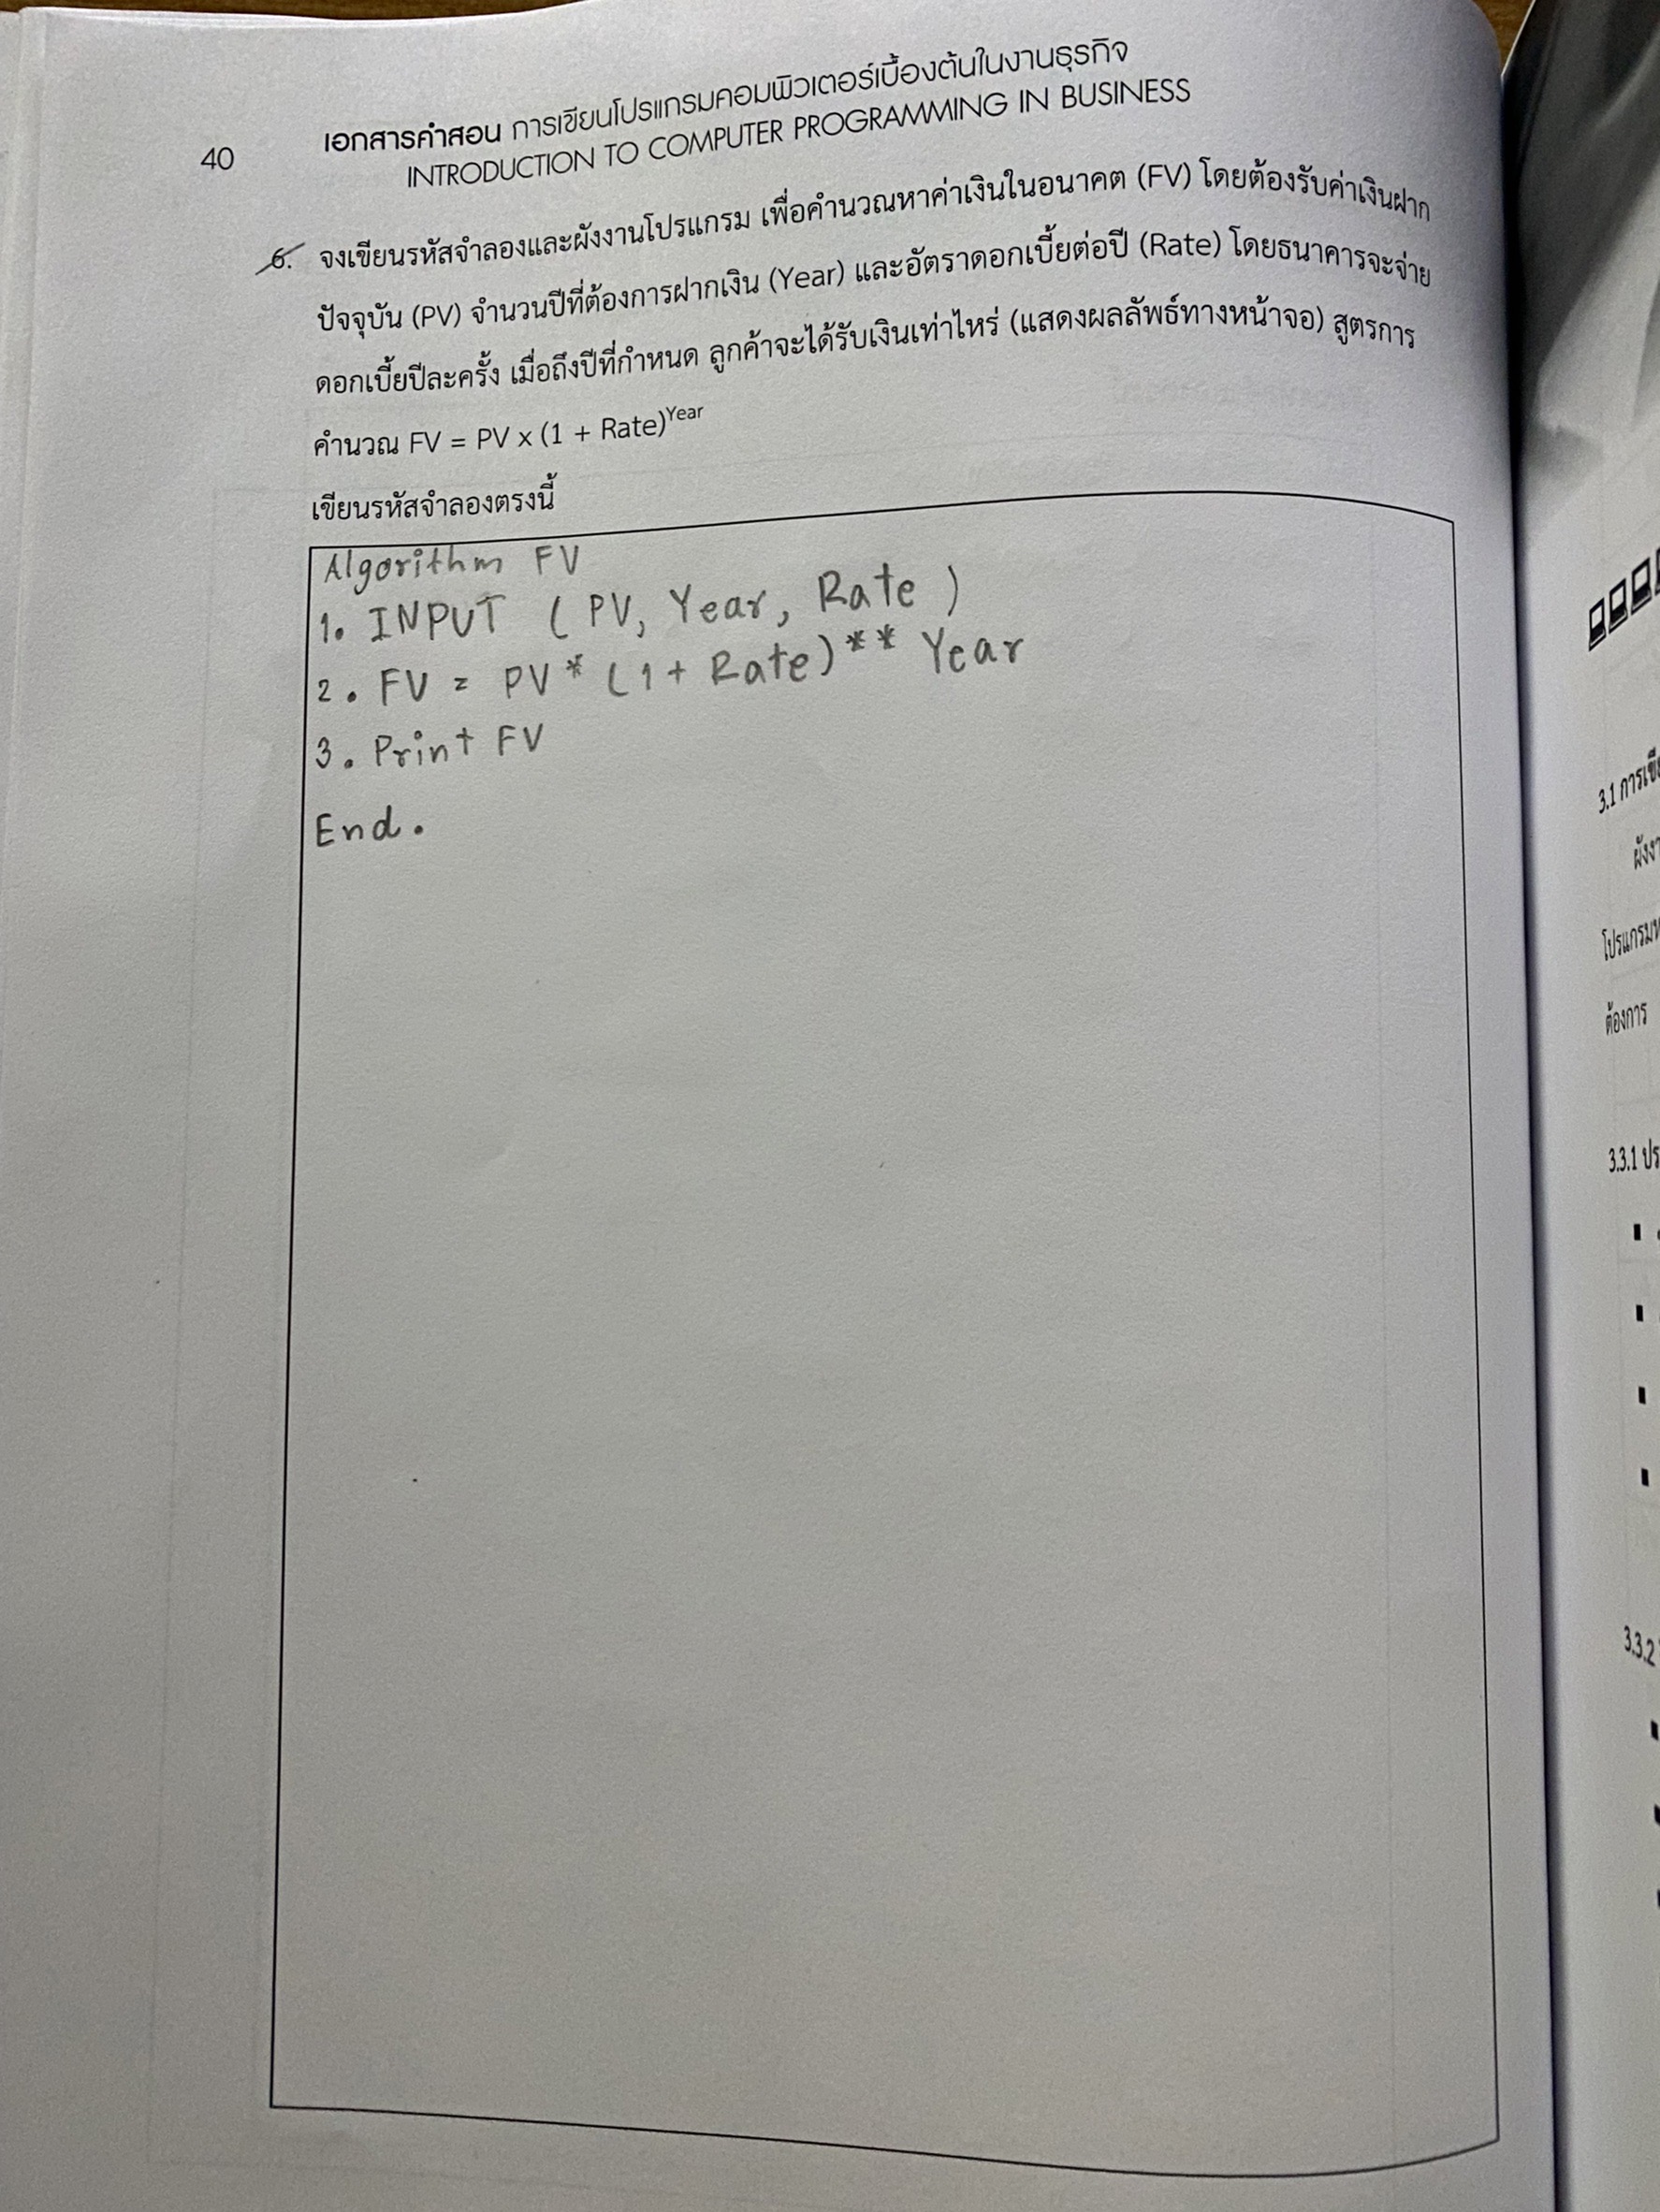 40
เอกสารคำสอน การเขียนโปรแกรมคอมพิวเตอร์เบื้องต้นในงานธุรกิจ
INTRODUCTION TO COMPUTER PROGRAMMING IN BUSINESS
6. จงเขียนรหัสจำลองและผังงานโปรแกรม เพื่อคำนวณหาค่าเงินในอนาคต (FV) โดยต้องรับค่าเงินฝาก
ปัจจุบัน (PV) จำนวนปีที่ต้องการฝากเงิน (Year) และอัตราดอกเบี้ยต่อปี (Rate) โดยธนาคารจะจ่าย
ดอกเบี้ยปีละครั้ง เมื่อถึงปีที่กำหนด ลูกค้าจะได้รับเงินเท่าไหร่ (แสดงผลลัพธ์ทางหน้าจอ) สูตรการ
คำนวณ FV = PV x (1 + Rate)^Year
เขียนรหัสจำลองตรงนี้
Algorithm FV
1. INPUT (PV, Year, Rate)
2. FV = PV * (1 + Rate) ** Year
3. Print FV
End.
3.1
โปรแกรม
ต้องการ
3.3.1
3.3.2